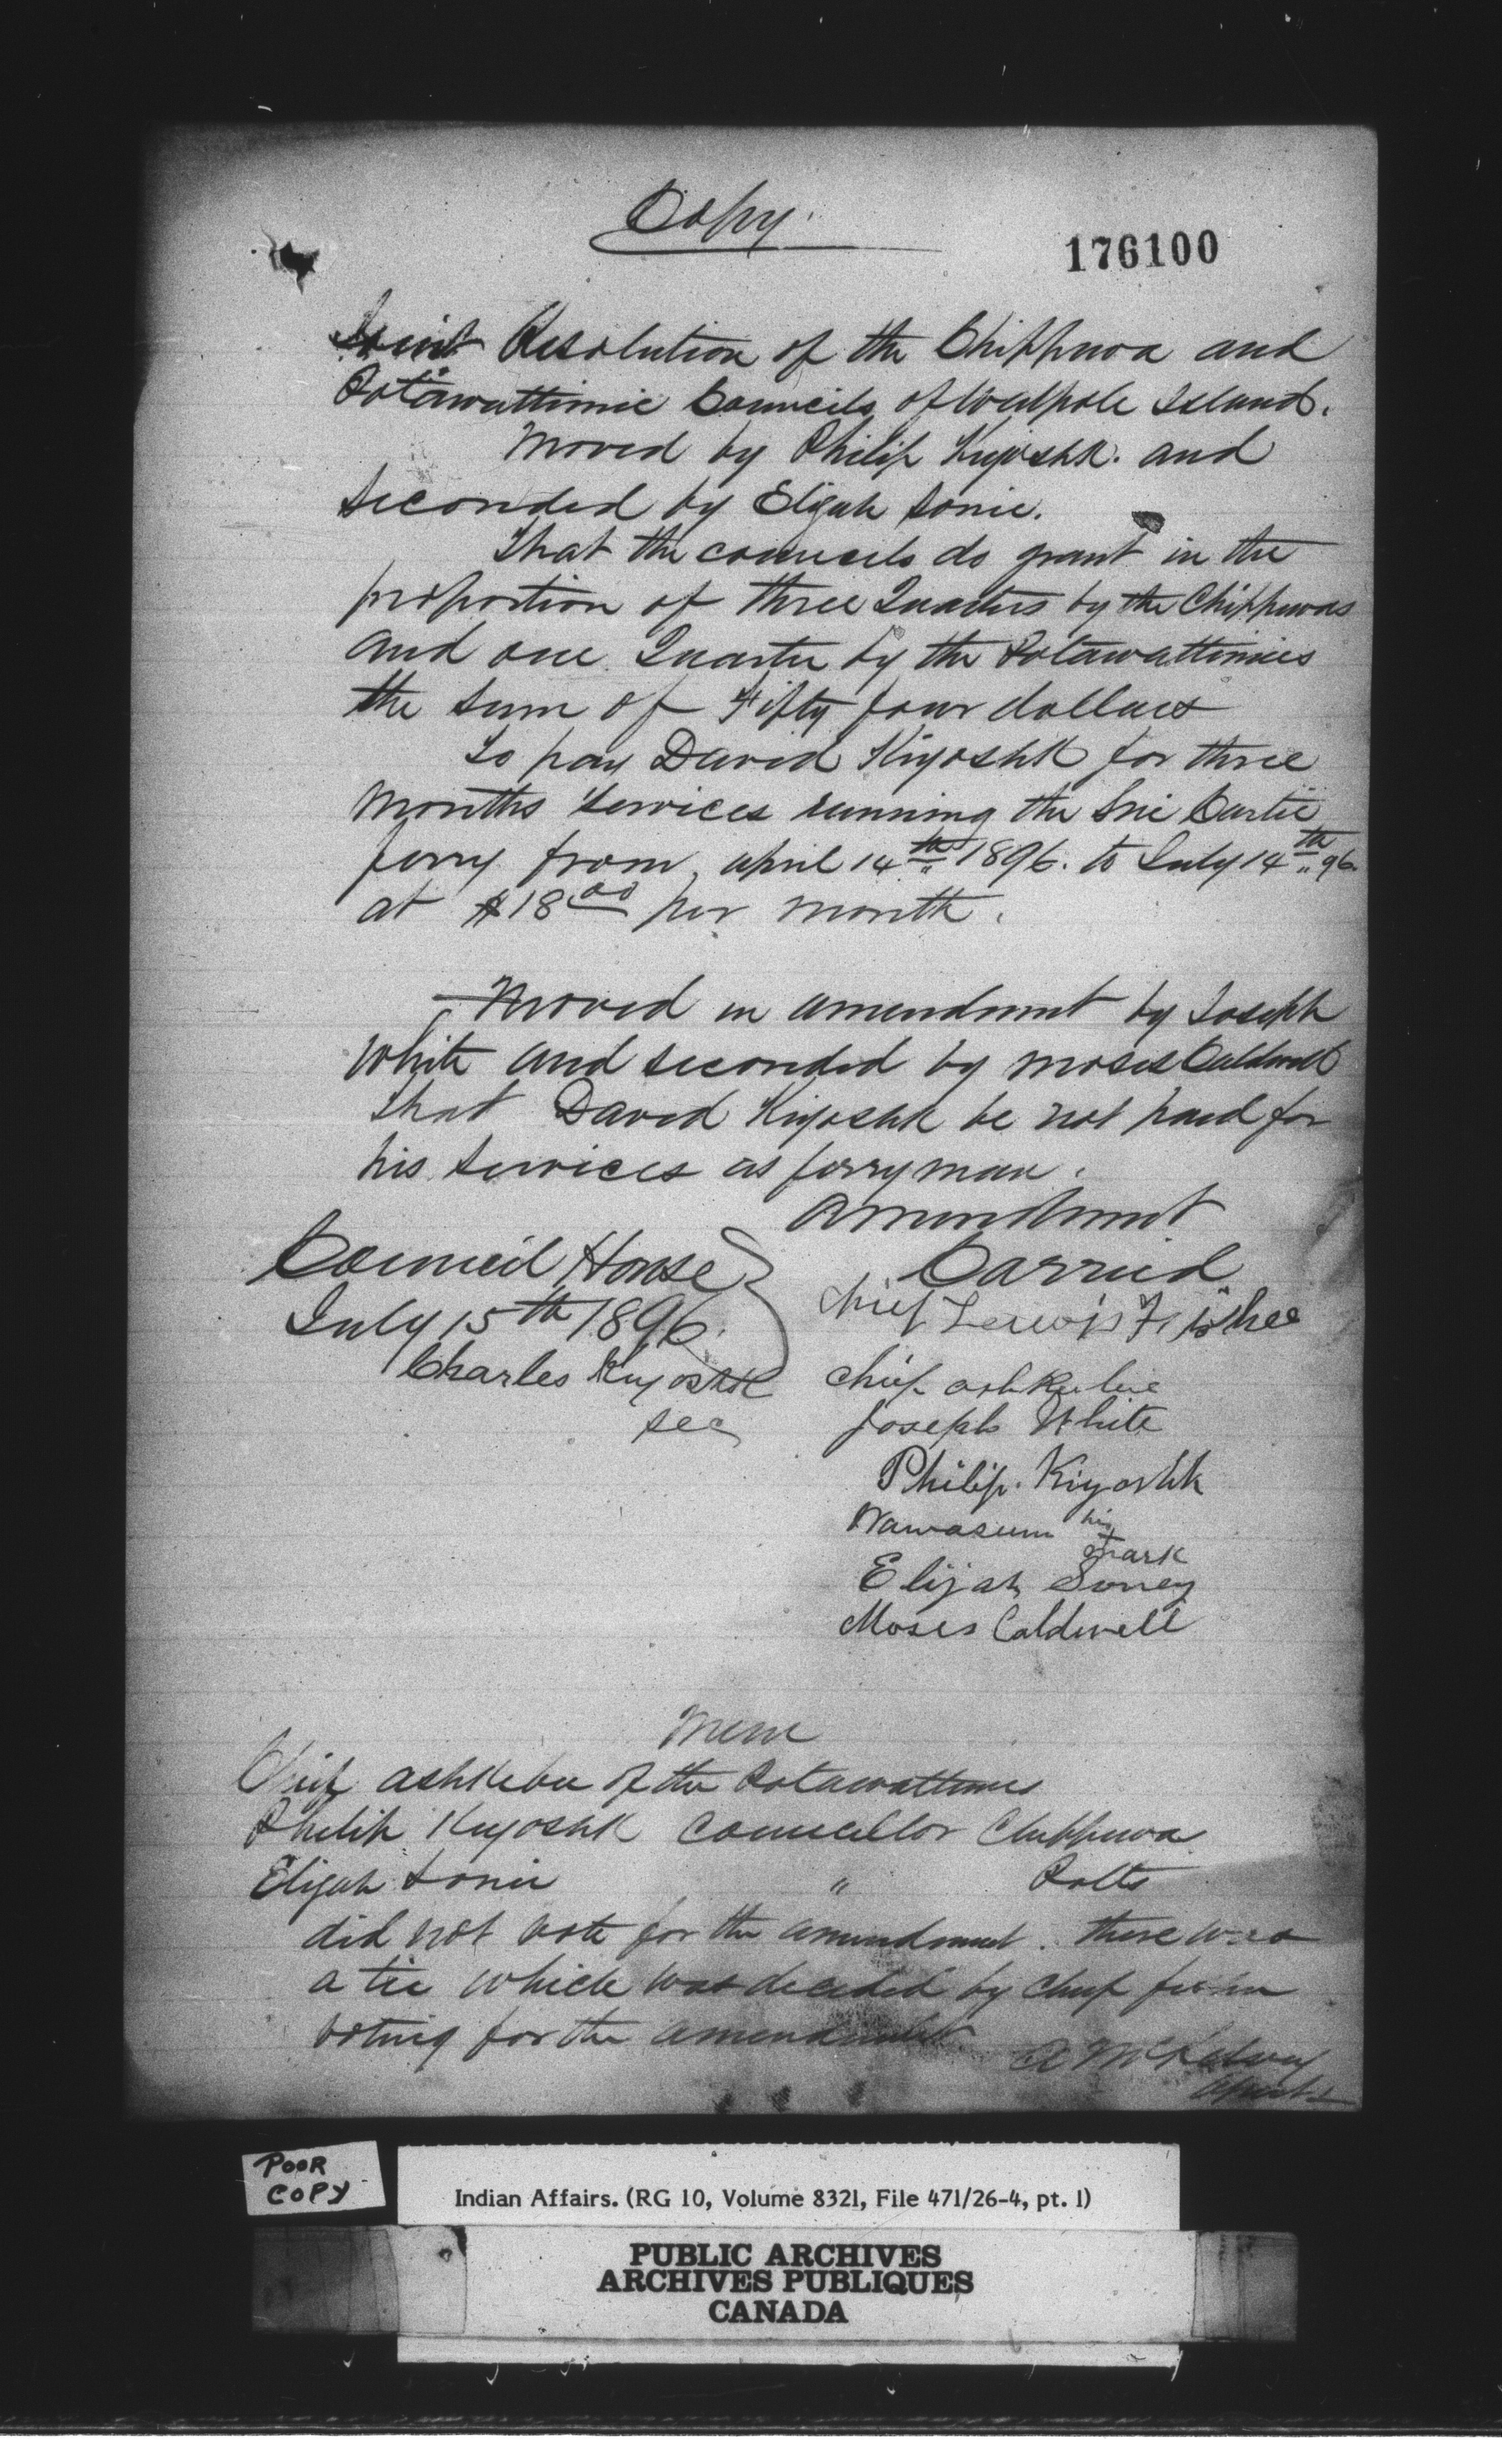 Copy.
176100
Joint Resolution of the Chippewa and
Potawattimie Councils of Walpole Island.
Moved by Philip Kiyoshk. and
Seconded by Elijah Sonie.
That the councils do grant in the
proportion of three Quarters by the Chippewas
and one Quarter by the Potawattimies
the sum of Fifty four dollars
to pay David Kiyoshk for three
months services running the Sni Cartie
ferry from april 14th 1896. to July 14th 96
at $18 00 per month.
Moved in amendment by Joseph
White and seconded by Moses Caldwell
that David Kiyoshk be not paid for
his services as ferryman.
Amendment
Carried
Council House
July 15th 1896.
Charles Kiyoshk
Sec
Chief Lewis Fishee
Chief ashkebee
Joseph White
Philip. Kiyoshk
Wawasum his
mark
Elijah Soney
Moses Caldwell
Mem
Chief Ashkebee of the Potawattimies
Philip Kiyoshk Councellor Chippewa
Elijah Sonie " Potts
did not vote for the amendment. there was
a tie which was decided by Chief
voting for the amendment
A McKelvey
Agent
POOR
COPY
Indian Affairs. (RG 10, Volume 8321, File 471/26-4, pt. 1)
PUBLIC ARCHIVES
ARCHIVES PUBLIQUES
CANADA